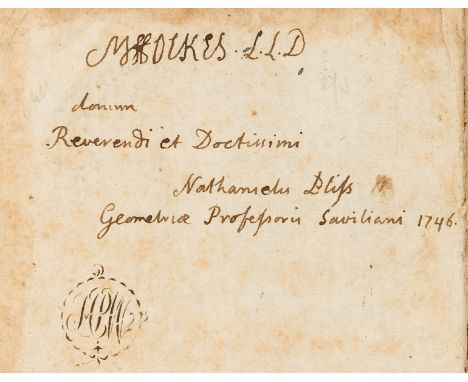 MffOLKES. L.L.D
donum
Reverendi et Doctissimi
Nathanaelis Bliss
Geometriæ Professoris Saviliani 1746.